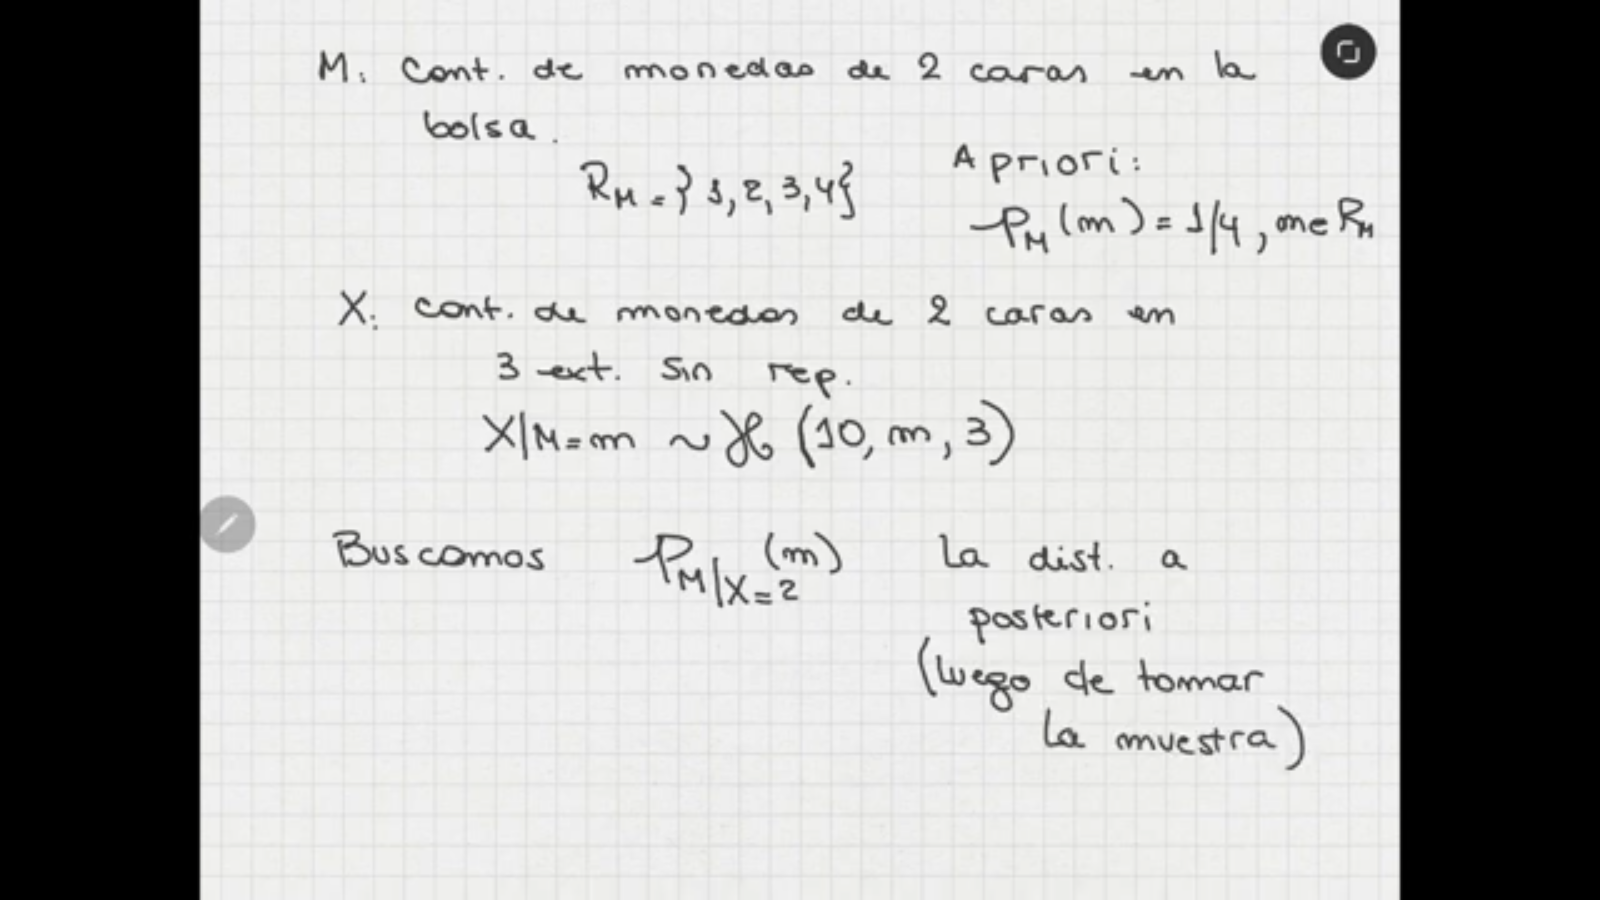 M: Cont. de monedas de 2 caras en la
bolsa.
R_M = {1, 2, 3, 4}
A priori:
P_M(m) = 1/4, m ∈ R_M
X: cont. de monedas de 2 caras en
3 ext. sin rep.
X|M=m ~ H(10, m, 3)
Buscamos P_M|X=2 (m) La dist. a
posteriori
(luego de tomar
la muestra)